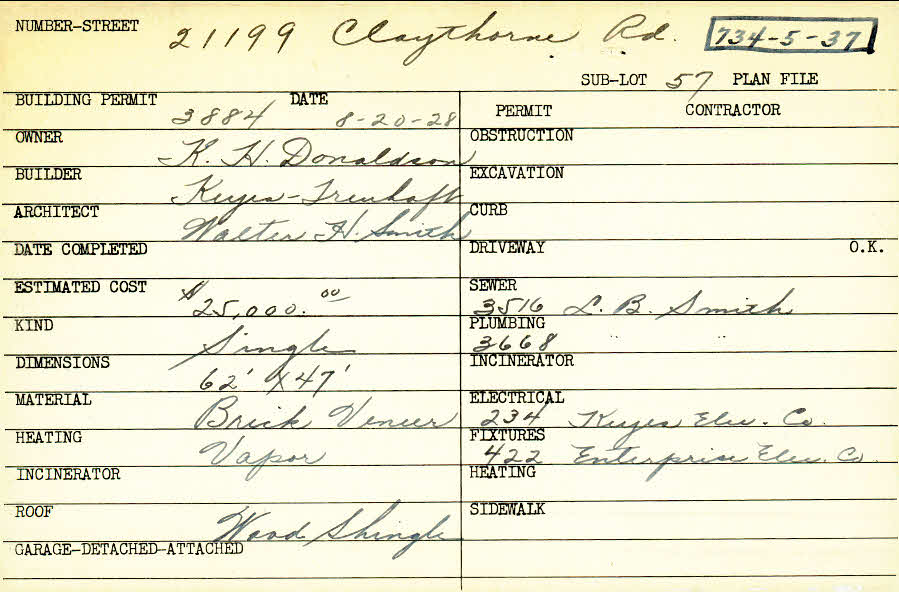 NUMBER-STREET 21199 Claythorne Rd. 734-5-37
SUB-LOT 57 PLAN FILE
BUILDING PERMIT 3884 DATE 8-20-28
PERMIT CONTRACTOR
OWNER K. H. Donaldson
OBSTRUCTION
BUILDER Keyes-Treuhaft
EXCAVATION
ARCHITECT Walter H. Smith
CURB
DATE COMPLETED
DRIVEWAY O.K.
ESTIMATED COST $25,000.00
SEWER 3516 L. B. Smith
KIND Single
PLUMBING 3668 " "
DIMENSIONS 62' X 47'
INCINERATOR
MATERIAL Brick Veneer
ELECTRICAL 234 Keyes Elec. Co.
HEATING Vapor
FIXTURES 422 Enterprise Elec. Co.
INCINERATOR
HEATING
ROOF Wood Shingle
SIDEWALK
GARAGE-DETACHED-ATTACHED